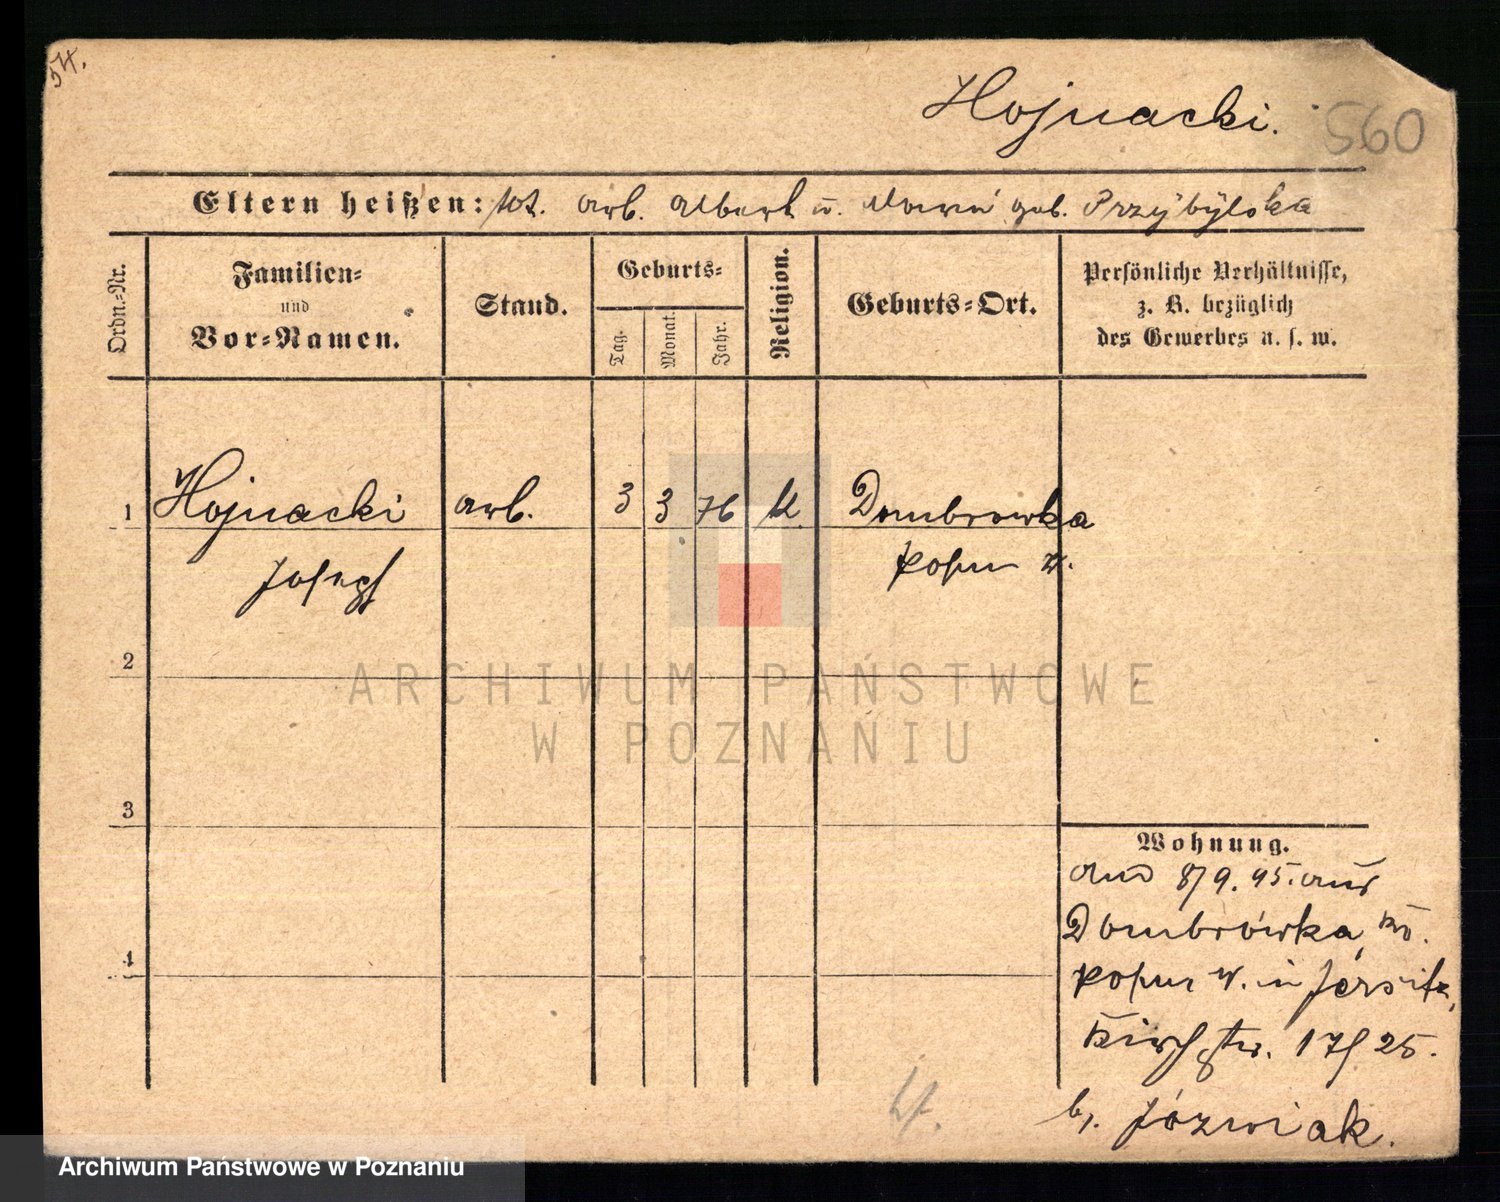 54.
Hojnacki. 560
Eltern heißen: arb. Albert u. Maria geb. Przybylska
Ordn.-Nr.
Familien-
und
Vor-Namen.
Stand.
Geburts-
Tag. Monat. Jahr.
Religion.
Geburts-Ort.
Persönliche Verhältnisse,
z. B. bezüglich
des Gewerbes u. s. w.
1 Hojnacki arb. 3 3 76 k. Dombrowka
Joseph Posen W.
2
ARCHIWUM PAŃSTWOWE
W POZNANIU
3
Wohnung.
8/9. 95. aus
Dombrówka, Kr.
4
Posen W. in Jersitz,
Kirchstr. 17/25.
b. Józwiak.
Archiwum Państwowe w Poznaniu